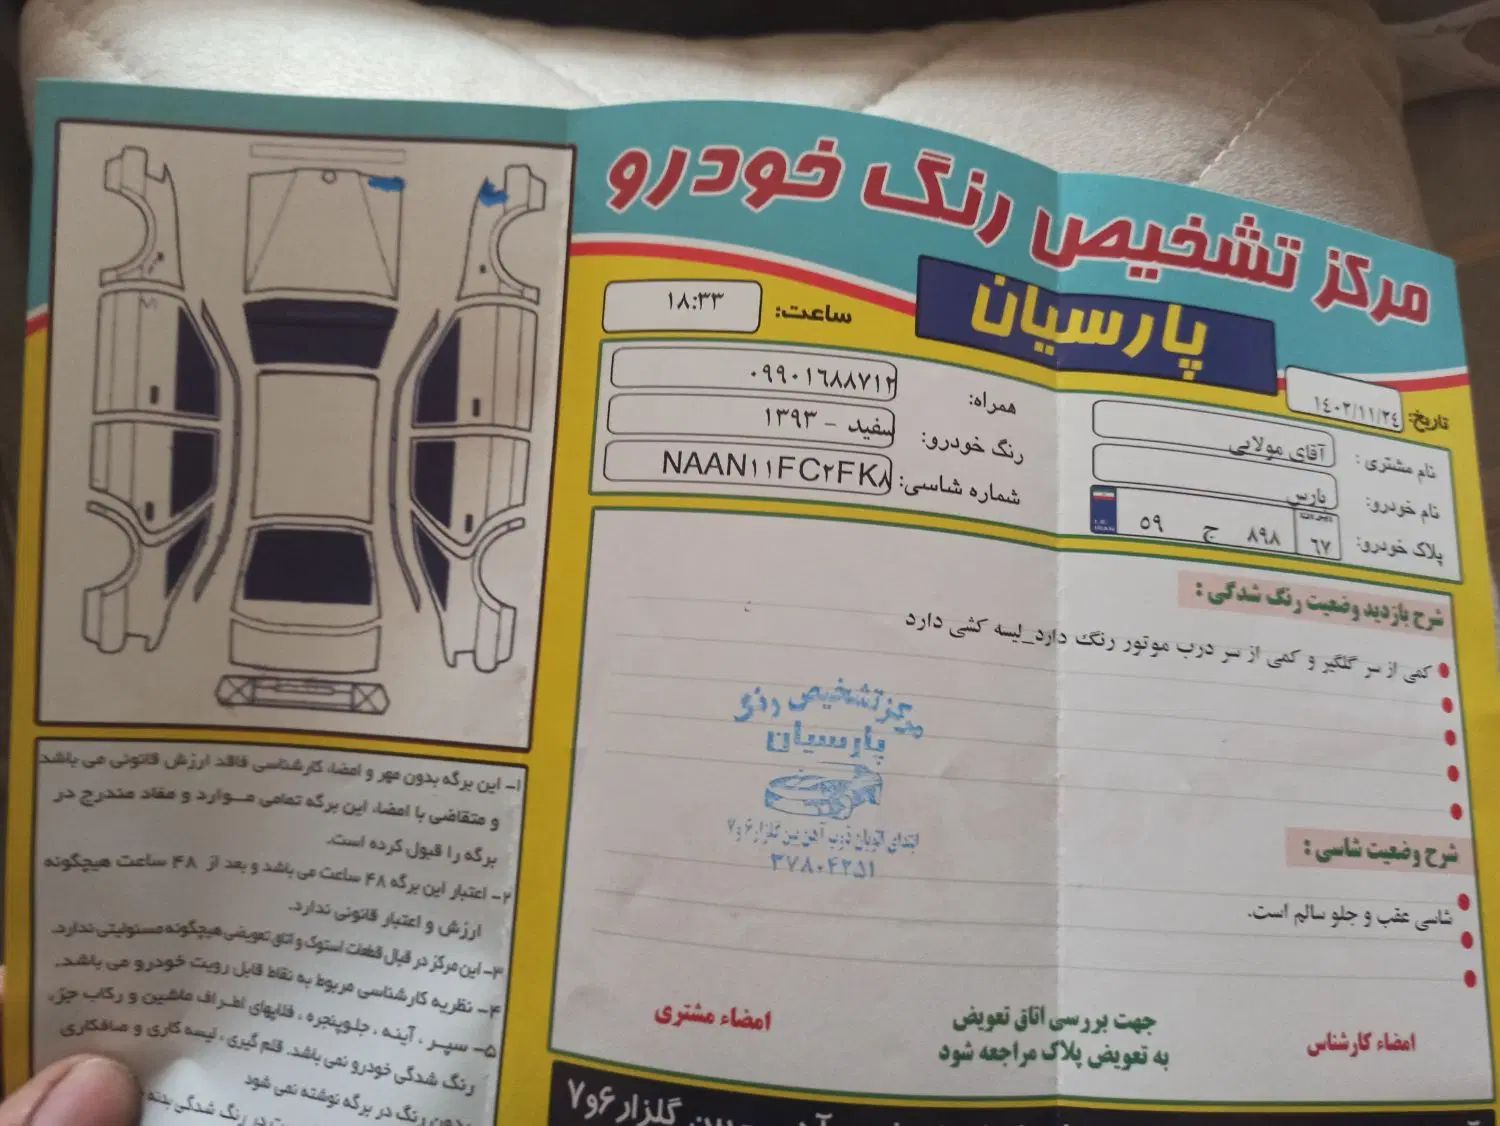 مرکز تشخیص رنگ خودرو
پارسیان
تاریخ: ۱۴۰۲/۱۱/۲۴
ساعت: ۱۸:۳۳
نام مشتری : آقای مولایی
نام خودرو: پارس
پلاک خودرو: ۵۹ ج ۸۹۸ ۶۷
همراه: ۰۹۹۰۱۶۸۸۷۱۲
رنگ خودرو: سفید - ۱۳۹۳
شماره شاسی: NAAN۱۱FC۲FK۸
شرح بازدید وضعیت رنگ شدگی :
کمی از سر گلگیر و کمی از سر درب موتور رنگ دارد_لیسه کشی دارد
مرکز تشخیص رنگ
پارسیان
ابتدای اتوبان ذوب آهن بین گلزار ۶ و ۷
۳۷۸۰۴۲۵۱
شرح وضعیت شاسی :
شاسی عقب و جلو سالم است.
امضاء کارشناس
جهت بررسی اتاق تعویض
به تعویض پلاک مراجعه شود
امضاء مشتری
گلزار ۶و۷
۱- این برگه بدون مهر و امضاء کارشناسی فاقد ارزش قانونی می باشد
و متقاضی با امضاء این برگه تمامی موارد و مفاد مندرج در
برگه را قبول کرده است.
۲- اعتبار این برگه ۴۸ ساعت می باشد و بعد از ۴۸ ساعت هیچگونه
ارزش و اعتبار قانونی ندارد.
۳- این مرکز در قبال قطعات استوک و اتاق تعویضی هیچگونه مسئولیتی ندارد.
۴- نظریه کارشناسی مربوط به نقاط قابل رویت خودرو می باشد.
۵- سپر ، آینه ، جلوپنجره ، فلاپهای اطراف ماشین و رکاب جزء
رنگ شدگی خودرو نمی باشد. قلم گیری ، لیسه کاری و صافکاری
بدون رنگ در برگه نوشته نمی شود
در رنگ شدگی بدنه